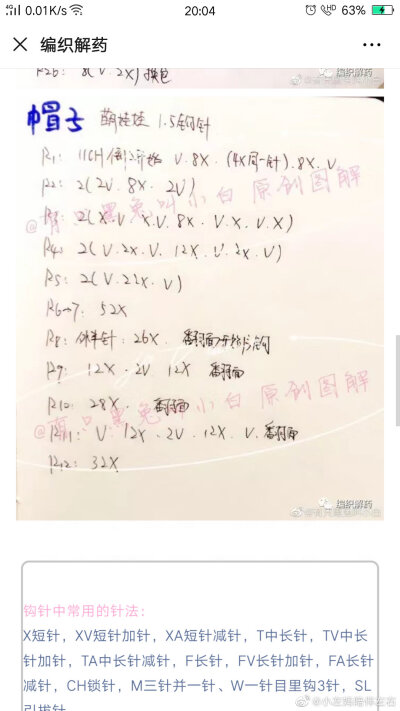 0.01K/s
20:04
HD 63%
编织解药
R26: 8(V.2X) 换色
编织解药
帽子 萌娃娃 1.5钩针
R1: 11CH 倒2开始 V.8X.(4X同一针).8X.V
R2: 2(2V.8X.2V)
R3: 2(X.V.X.V.8X.V.X.V.X)
R4: 2(V.2X.V.12X.V.2X.V)
R5: 2(V.22X.V)
R6→7: 52X
R8: 外半针: 26X. 翻面
R9: 12X.2V.12X 翻面
R10: 28X. 翻面
R11: V.12X.2V.12X.V.翻面
R12: 32X
小白 原创图解
小白 原创图解
编织解药
钩针中常用的针法:
X短针，XV短针加针，XA短针减针，T中长针，TV中长
针加针，TA中长针减针，F长针，FV长针加针，FA长针
减针，CH锁针，M三针并一针、W一针目里钩3针，SL
引拔针